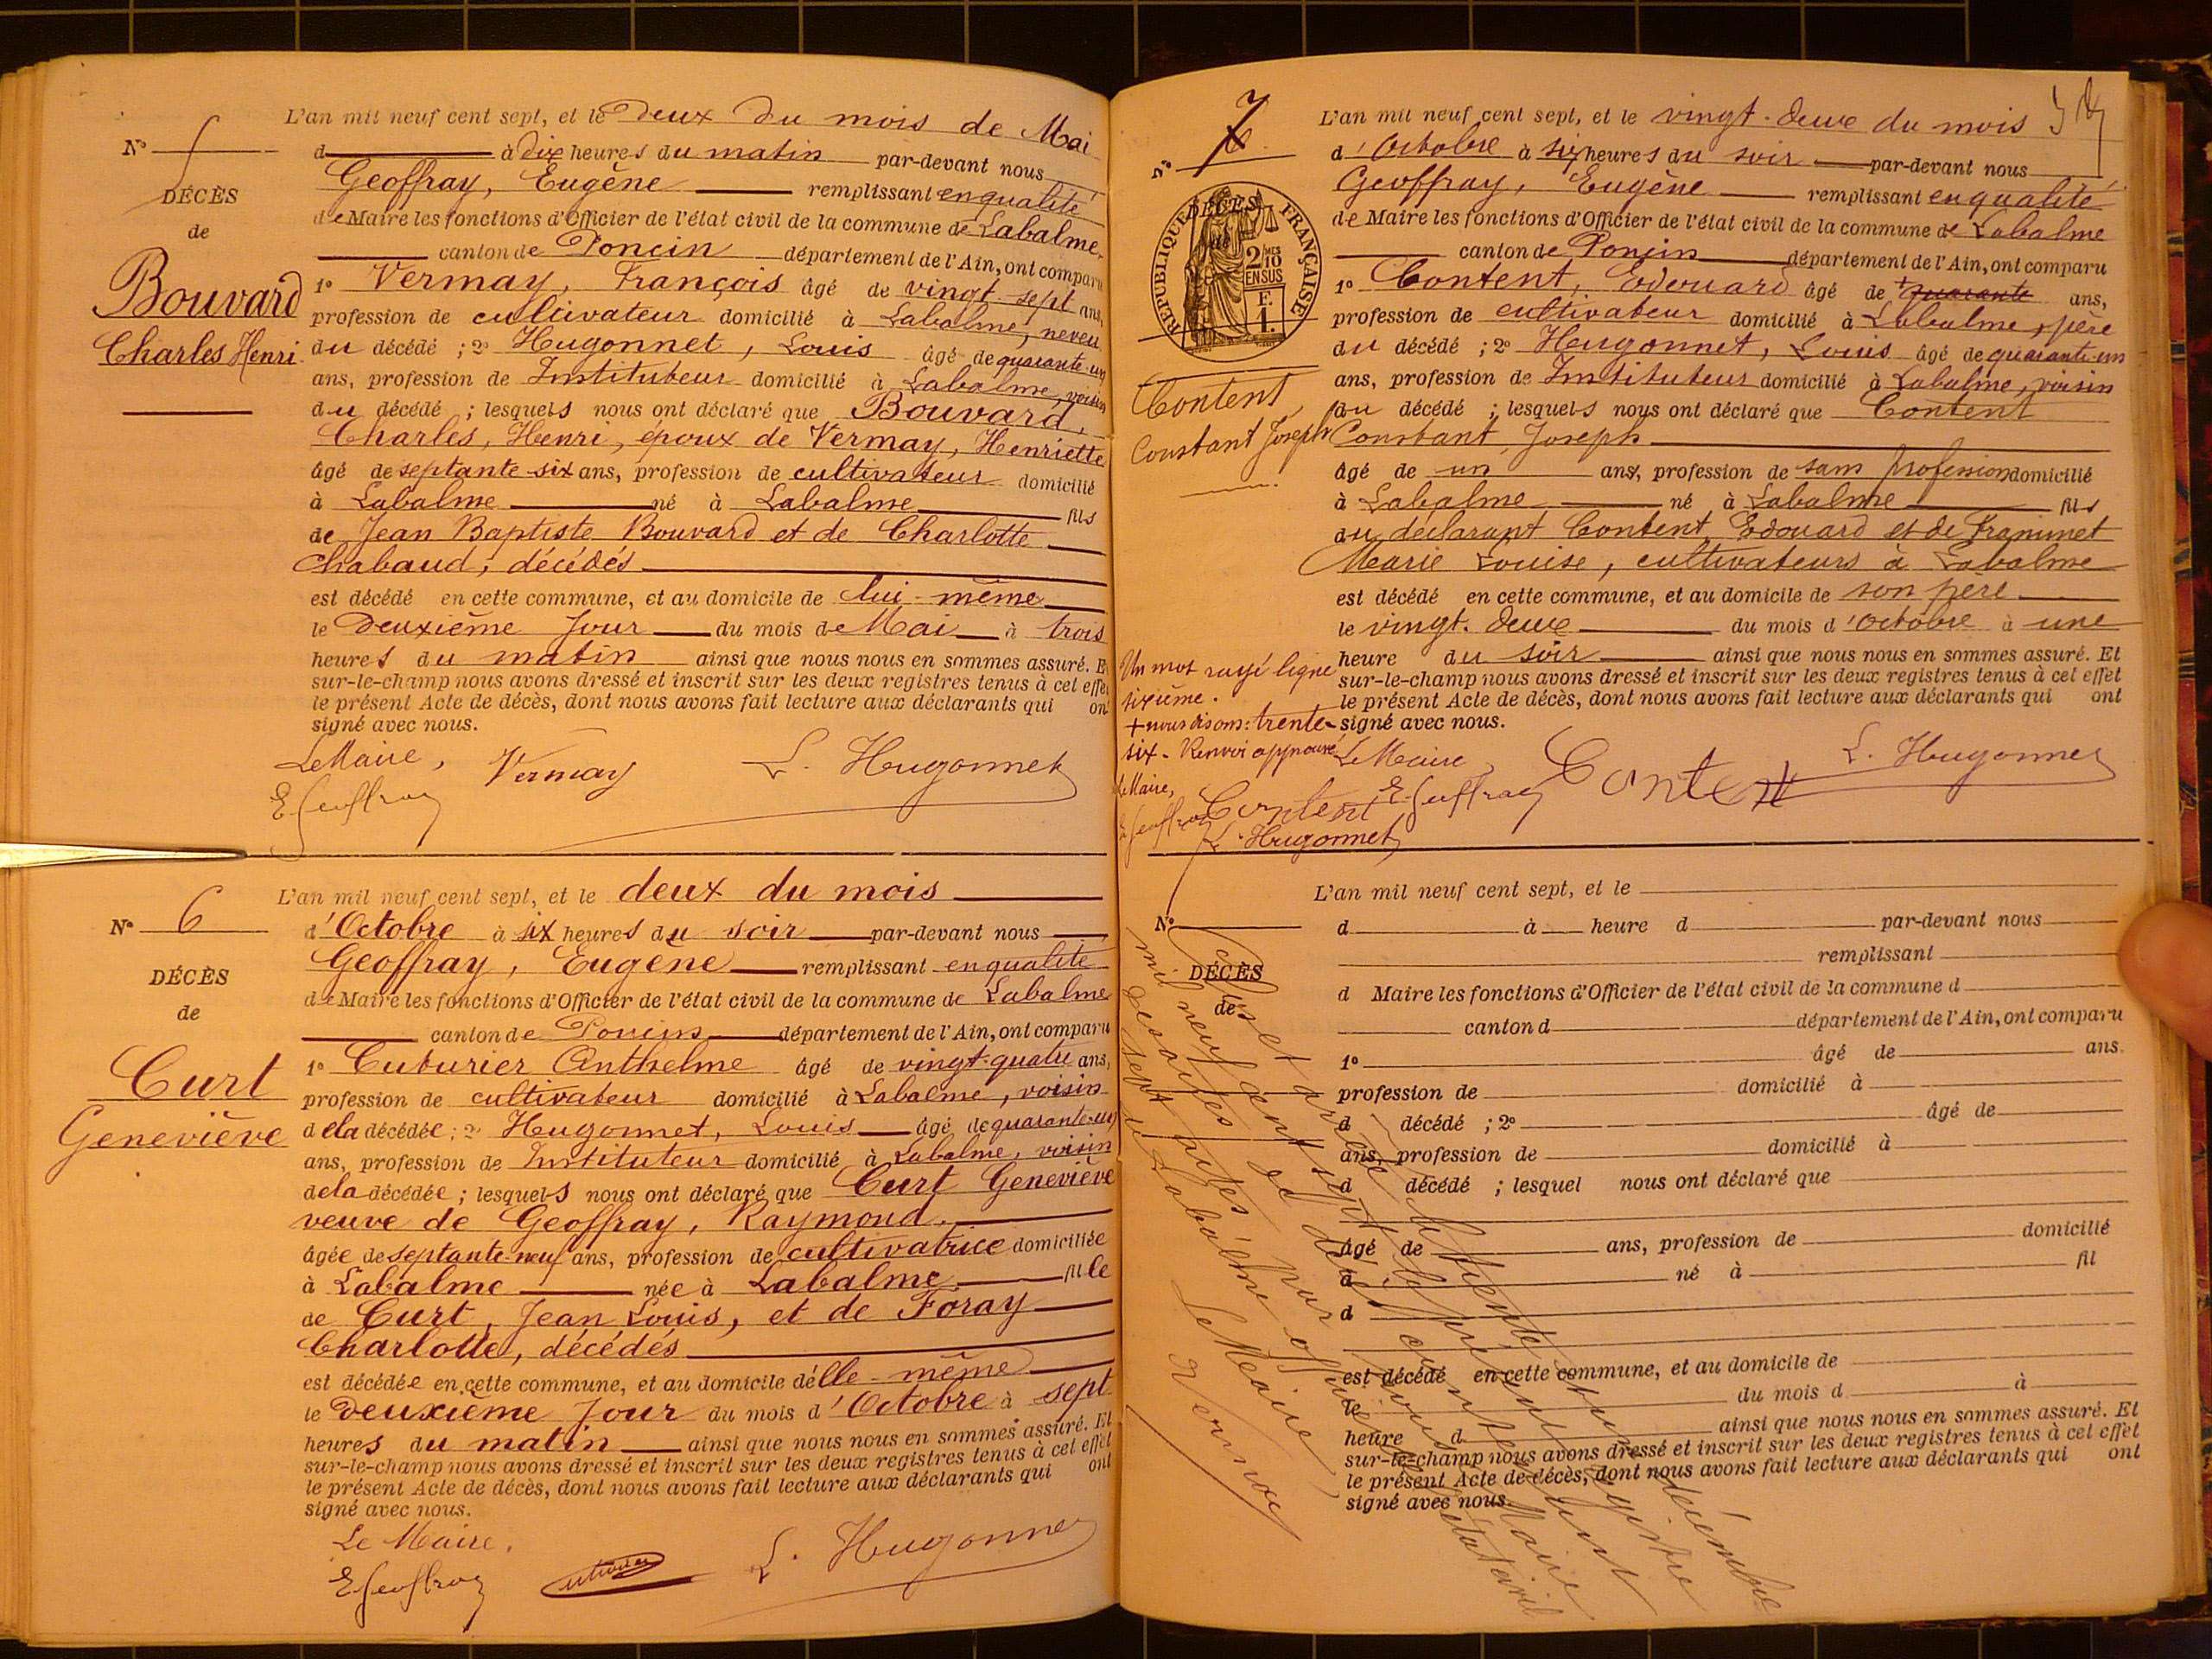 L'an mil neuf cent sept, et le deux du mois de Mai
N° 5
d à dix heures du matin par-devant nous
Geoffray, Eugène remplissant en qualité
DÉCÈS
de Maire les fonctions d'Officier de l'état civil de la commune de Labalme
de
canton de Poncin département de l'Ain, ont comparu
Bouvard
Charles Henri
1° Vermay, François âgé de vingt-sept ans,
profession de cultivateur domicilié à Labalme, neveu
du décédé ; 2° Hugonnet, Louis âgé de quarante-un
ans, profession de Instituteur domicilié à Labalme, voisin
du décédé ; lesquels nous ont déclaré que Bouvard,
Charles, Henri, époux de Vermay, Henriette
âgé de septante-six ans, profession de cultivateur domicilié
à Labalme né à Labalme fils
de Jean Baptiste Bouvard et de Charlotte
Chabaud, décédés
est décédé en cette commune, et au domicile de lui-même
le deuxième jour du mois de Mai à trois
heures du matin ainsi que nous nous en sommes assuré. Et
sur-le-champ nous avons dressé et inscrit sur les deux registres tenus à cet effet
le présent Acte de décès, dont nous avons fait lecture aux déclarants qui ont
signé avec nous.
Le Maire, Vermay L. Hugonnet
E Geoffray
L'an mil neuf cent sept, et le deux du mois
N° 6
d'Octobre à six heures du soir par-devant nous
Geoffray, Eugène remplissant en qualité
DÉCÈS
de Maire les fonctions d'Officier de l'état civil de la commune de Labalme
de
canton de Poncin département de l'Ain, ont comparu
Curt
Geneviève
1° Cuturier Anthelme âgé de vingt-quatre ans,
profession de cultivateur domicilié à Labalme, voisin
de la décédée ; 2° Hugonnet, Louis âgé de quarante-un
ans, profession de Instituteur domicilié à Labalme, voisin
de la décédée ; lesquels nous ont déclaré que Curt Geneviève
veuve de Geoffray, Raymond,
âgée de septante-neuf ans, profession de cultivatrice domiciliée
à Labalme née à Labalme fille
de Curt, Jean Louis, et de Foray
Charlotte, décédés
est décédée en cette commune, et au domicile d'elle-même
le deuxième jour du mois d'Octobre à sept
heures du matin ainsi que nous nous en sommes assuré. Et
sur-le-champ nous avons dressé et inscrit sur les deux registres tenus à cet effet
le présent Acte de décès, dont nous avons fait lecture aux déclarants qui ont
signé avec nous.
Le Maire,
E Geoffray L. Hugonnet
L'an mil neuf cent sept, et le vingt-deux du mois
N° 7
d'Octobre à six heures du soir par-devant nous
Geoffray, Eugène remplissant en qualité
de Maire les fonctions d'Officier de l'état civil de la commune de Labalme
canton de Poncin département de l'Ain, ont comparu
DÉCÈS
RÉPUBLIQUE FRANÇAISE
2/10 EN SUS
F. 1.
Content
Constant Joseph
1° Content, Edouard âgé de + quarante ans,
profession de cultivateur domicilié à Labalme, père
du décédé ; 2° Hugonnet, Louis âgé de quarante-un
ans, profession de Instituteur domicilié à Labalme, voisin
du décédé ; lesquels nous ont déclaré que Content
Constant, Joseph
âgé de un an, profession de sans profession domicilié
à Labalme né à Labalme fils
du déclarant Content Edouard et de Franinet
Marie Louise, cultivateurs à Labalme
est décédé en cette commune, et au domicile de son père
le vingt-deux du mois d'Octobre à une
heure du soir ainsi que nous nous en sommes assuré. Et
sur-le-champ nous avons dressé et inscrit sur les deux registres tenus à cet effet
le présent Acte de décès, dont nous avons fait lecture aux déclarants qui ont
signé avec nous.
Un mot rayé ligne
sixième.
+ nous disons: trente-
six - Renvoi approuvé
Le Maire,
E Geoffray Content
L. Hugonnet
Le Maire, E. Geoffray Content L. Hugonnet
L'an mil neuf cent sept, et le
N°
d à heure d par-devant nous
remplissant
DÉCÈS
d Maire les fonctions d'Officier de l'état civil de la commune d
de
canton d département de l'Ain, ont comparu
1° âgé de ans,
profession de domicilié à
d décédé ; 2° âgé de
ans, profession de domicilié à
d décédé ; lesquel nous ont déclaré que
âgé de ans, profession de domicilié
à né à fil
d
est décédé en cette commune, et au domicile de
le du mois d à
heure d ainsi que nous nous en sommes assuré. Et
sur-le-champ nous avons dressé et inscrit sur les deux registres tenus à cet effet
le présent Acte de décès, dont nous avons fait lecture aux déclarants qui ont
signé avec nous.
Clos et arrêté le trente et un décembre
mil neuf cent sept le présent registre
des actes de décès contenant
sept actes par nous Maire
officier de l'état civil
de Labalme
Le Maire,
Vermay